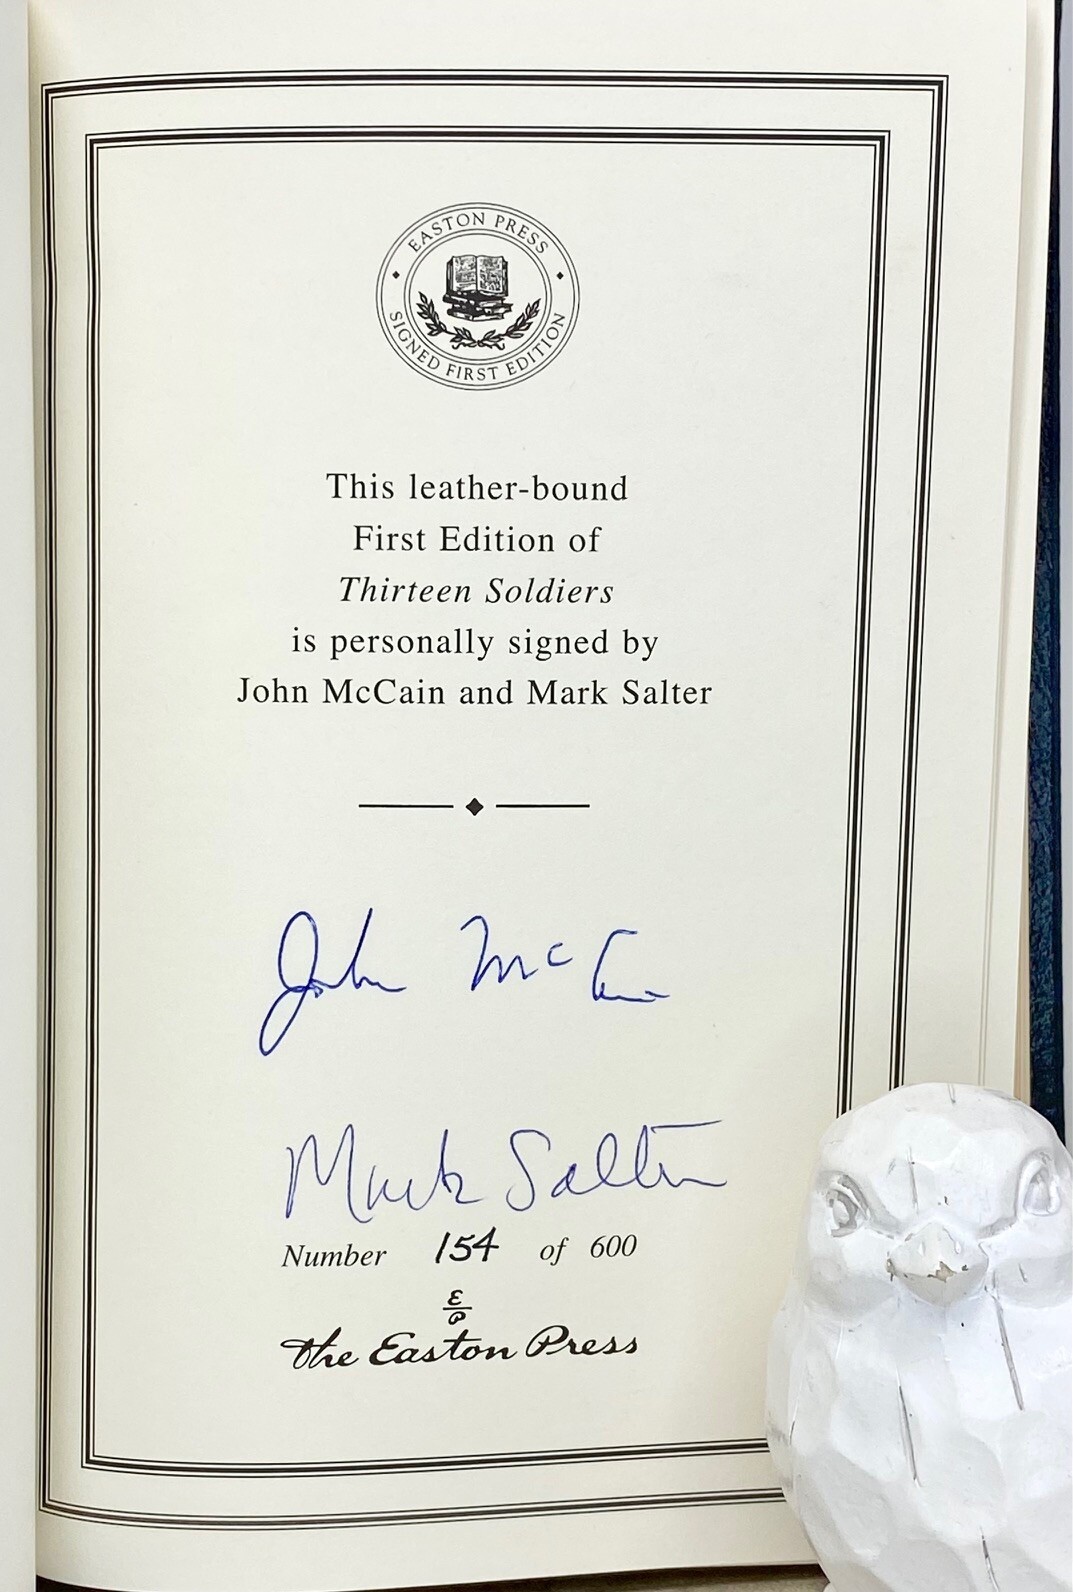 EASTON PRESS
SIGNED FIRST EDITION
This leather-bound
First Edition of
Thirteen Soldiers
is personally signed by
John McCain and Mark Salter
John McCain
Mark Salter
Number 154 of 600
E
P
The Easton Press